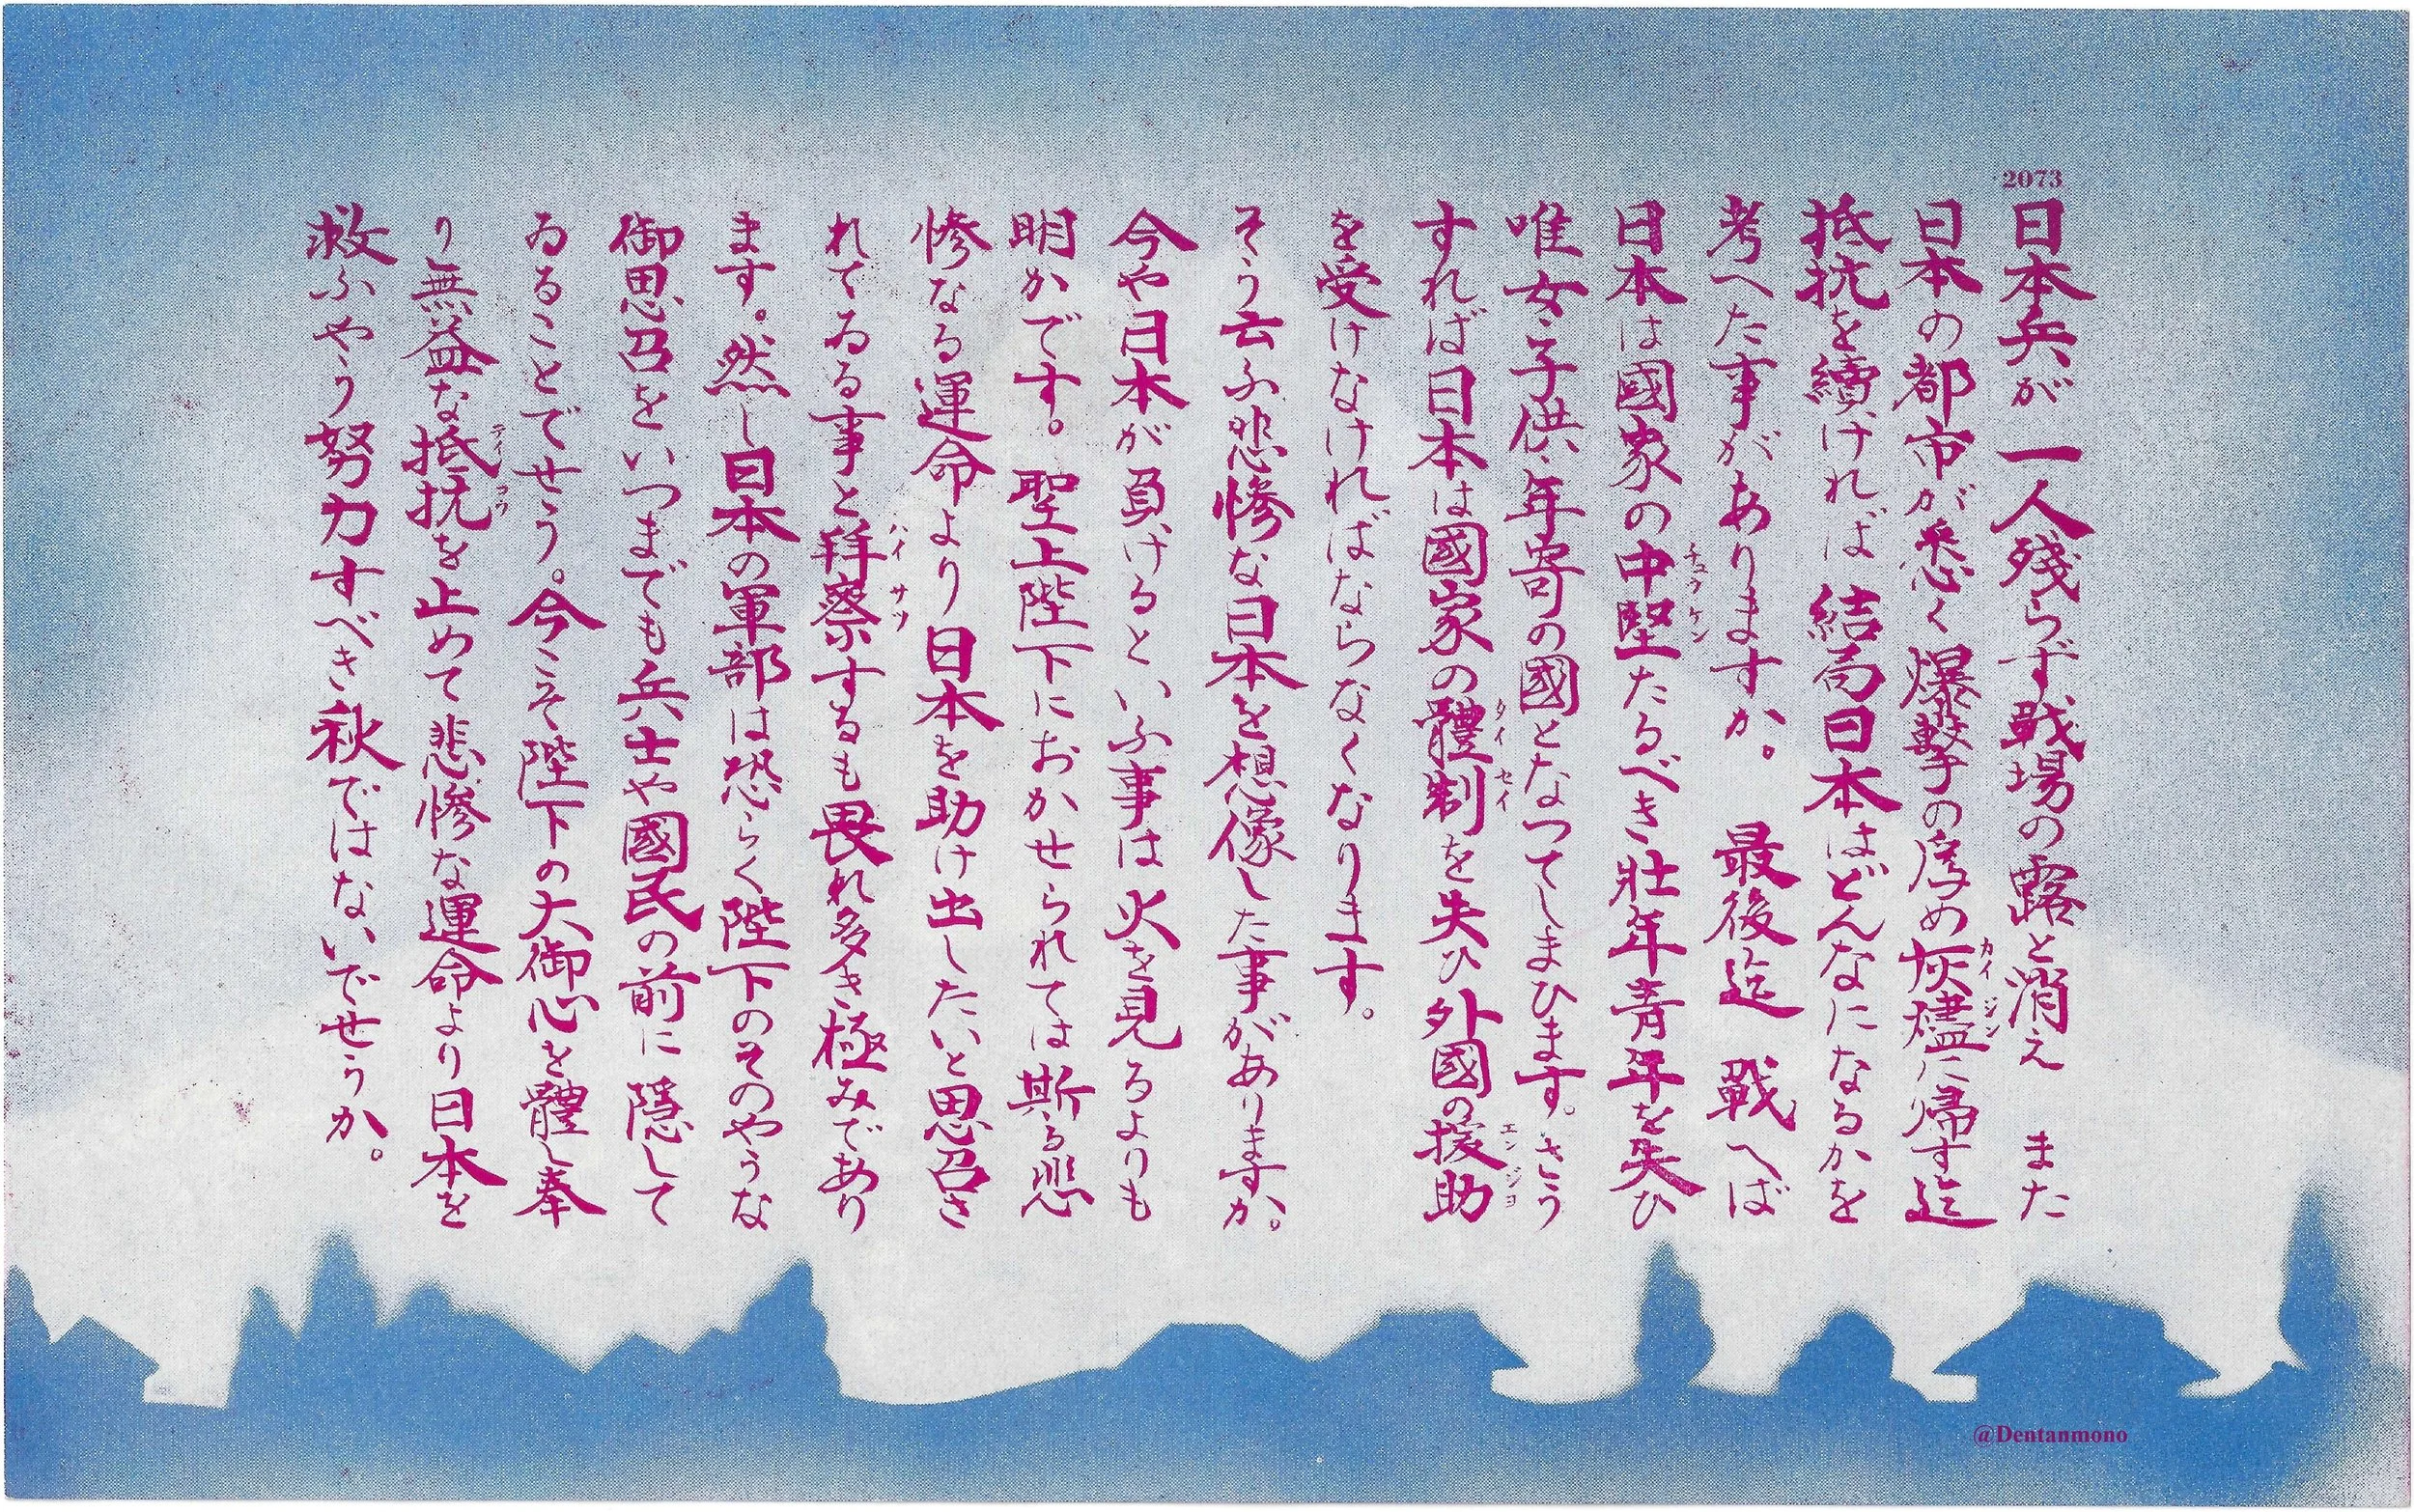 2073
日本兵が一人残らず戦場の露と消え また
日本の都市が悉く爆撃の為め灰燼に帰す迄
カイジン
抵抗を續ければ 結局日本はどんなになるかを
考へた事がありますか。 最後迄 戦へば
日本は國家の中堅たるべき壮年青年を失ひ
チュウケン
唯女子供年寄の國となつてしまひます。さう
すれば日本は國家の體制を失ひ外國の援助
タイセイ エンジヨ
を受けなければならなくなります。
そう云ふ悲惨な日本を想像した事がありますか。
今や日本が負けるといふ事は火を見るよりも
明かです。 聖上陛下におかせられては斯る悲
惨なる運命より日本を助け出したいと思召さ
れてゐる事と拝察するも畏れ多き極みであり
ハイサツ
ます。然し日本の軍部は恐らく陛下のそのやうな
御思召をいつまでも兵士や國民の前に隠して
ゐることでせう。今こそ陛下の大御心を體し奉
り無益な抵抗を止めて悲惨な運命より日本を
テイコウ
救ふやう努力すべき秋ではないでせうか。
@Dentanmono